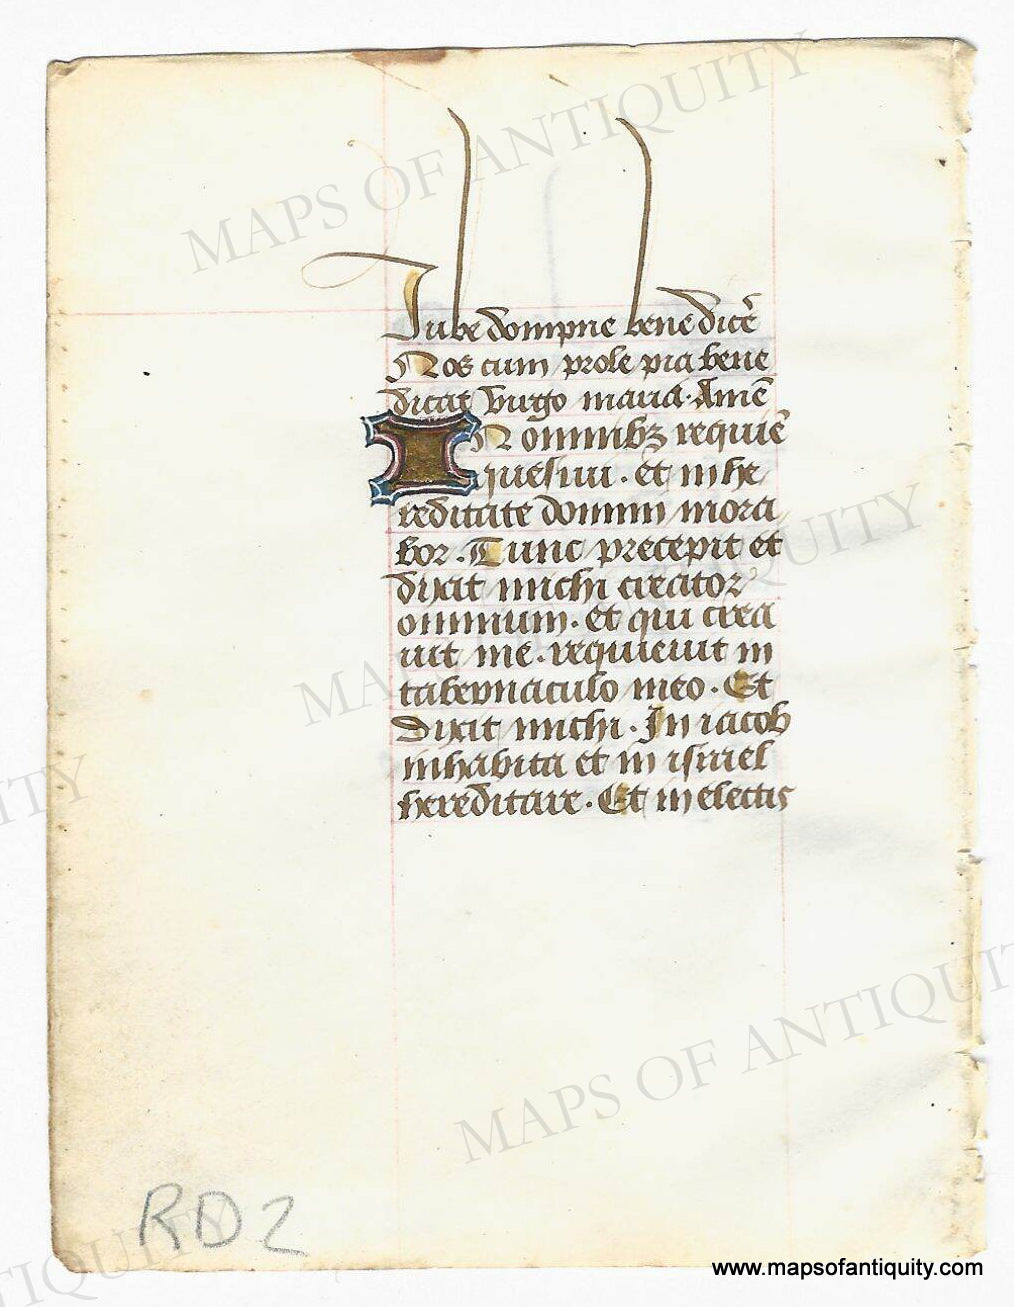 Jube dompne benedicē
Nos cum prole pia bene
dicat virgo maria. Amē
IN omnibꝫ requiē
quesiui. et in he
reditate domini mora
bor. Tunc precepit et
dixit michi creator
omnium. et qui crea
uit me. requieuit in
tabernaculo meo. Et
dixit michi. In iacob
inhabita et in israel
hereditare. Et in electis
RD2
MAPS OF ANTIQUITY
MAPS OF ANTIQUITY
MAPS OF ANTIQUITY
www.mapsofantiquity.com